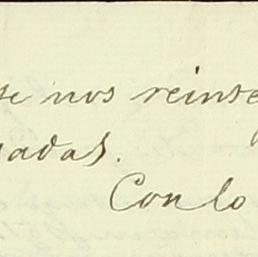 se nos reinte
sadas.
Con lo